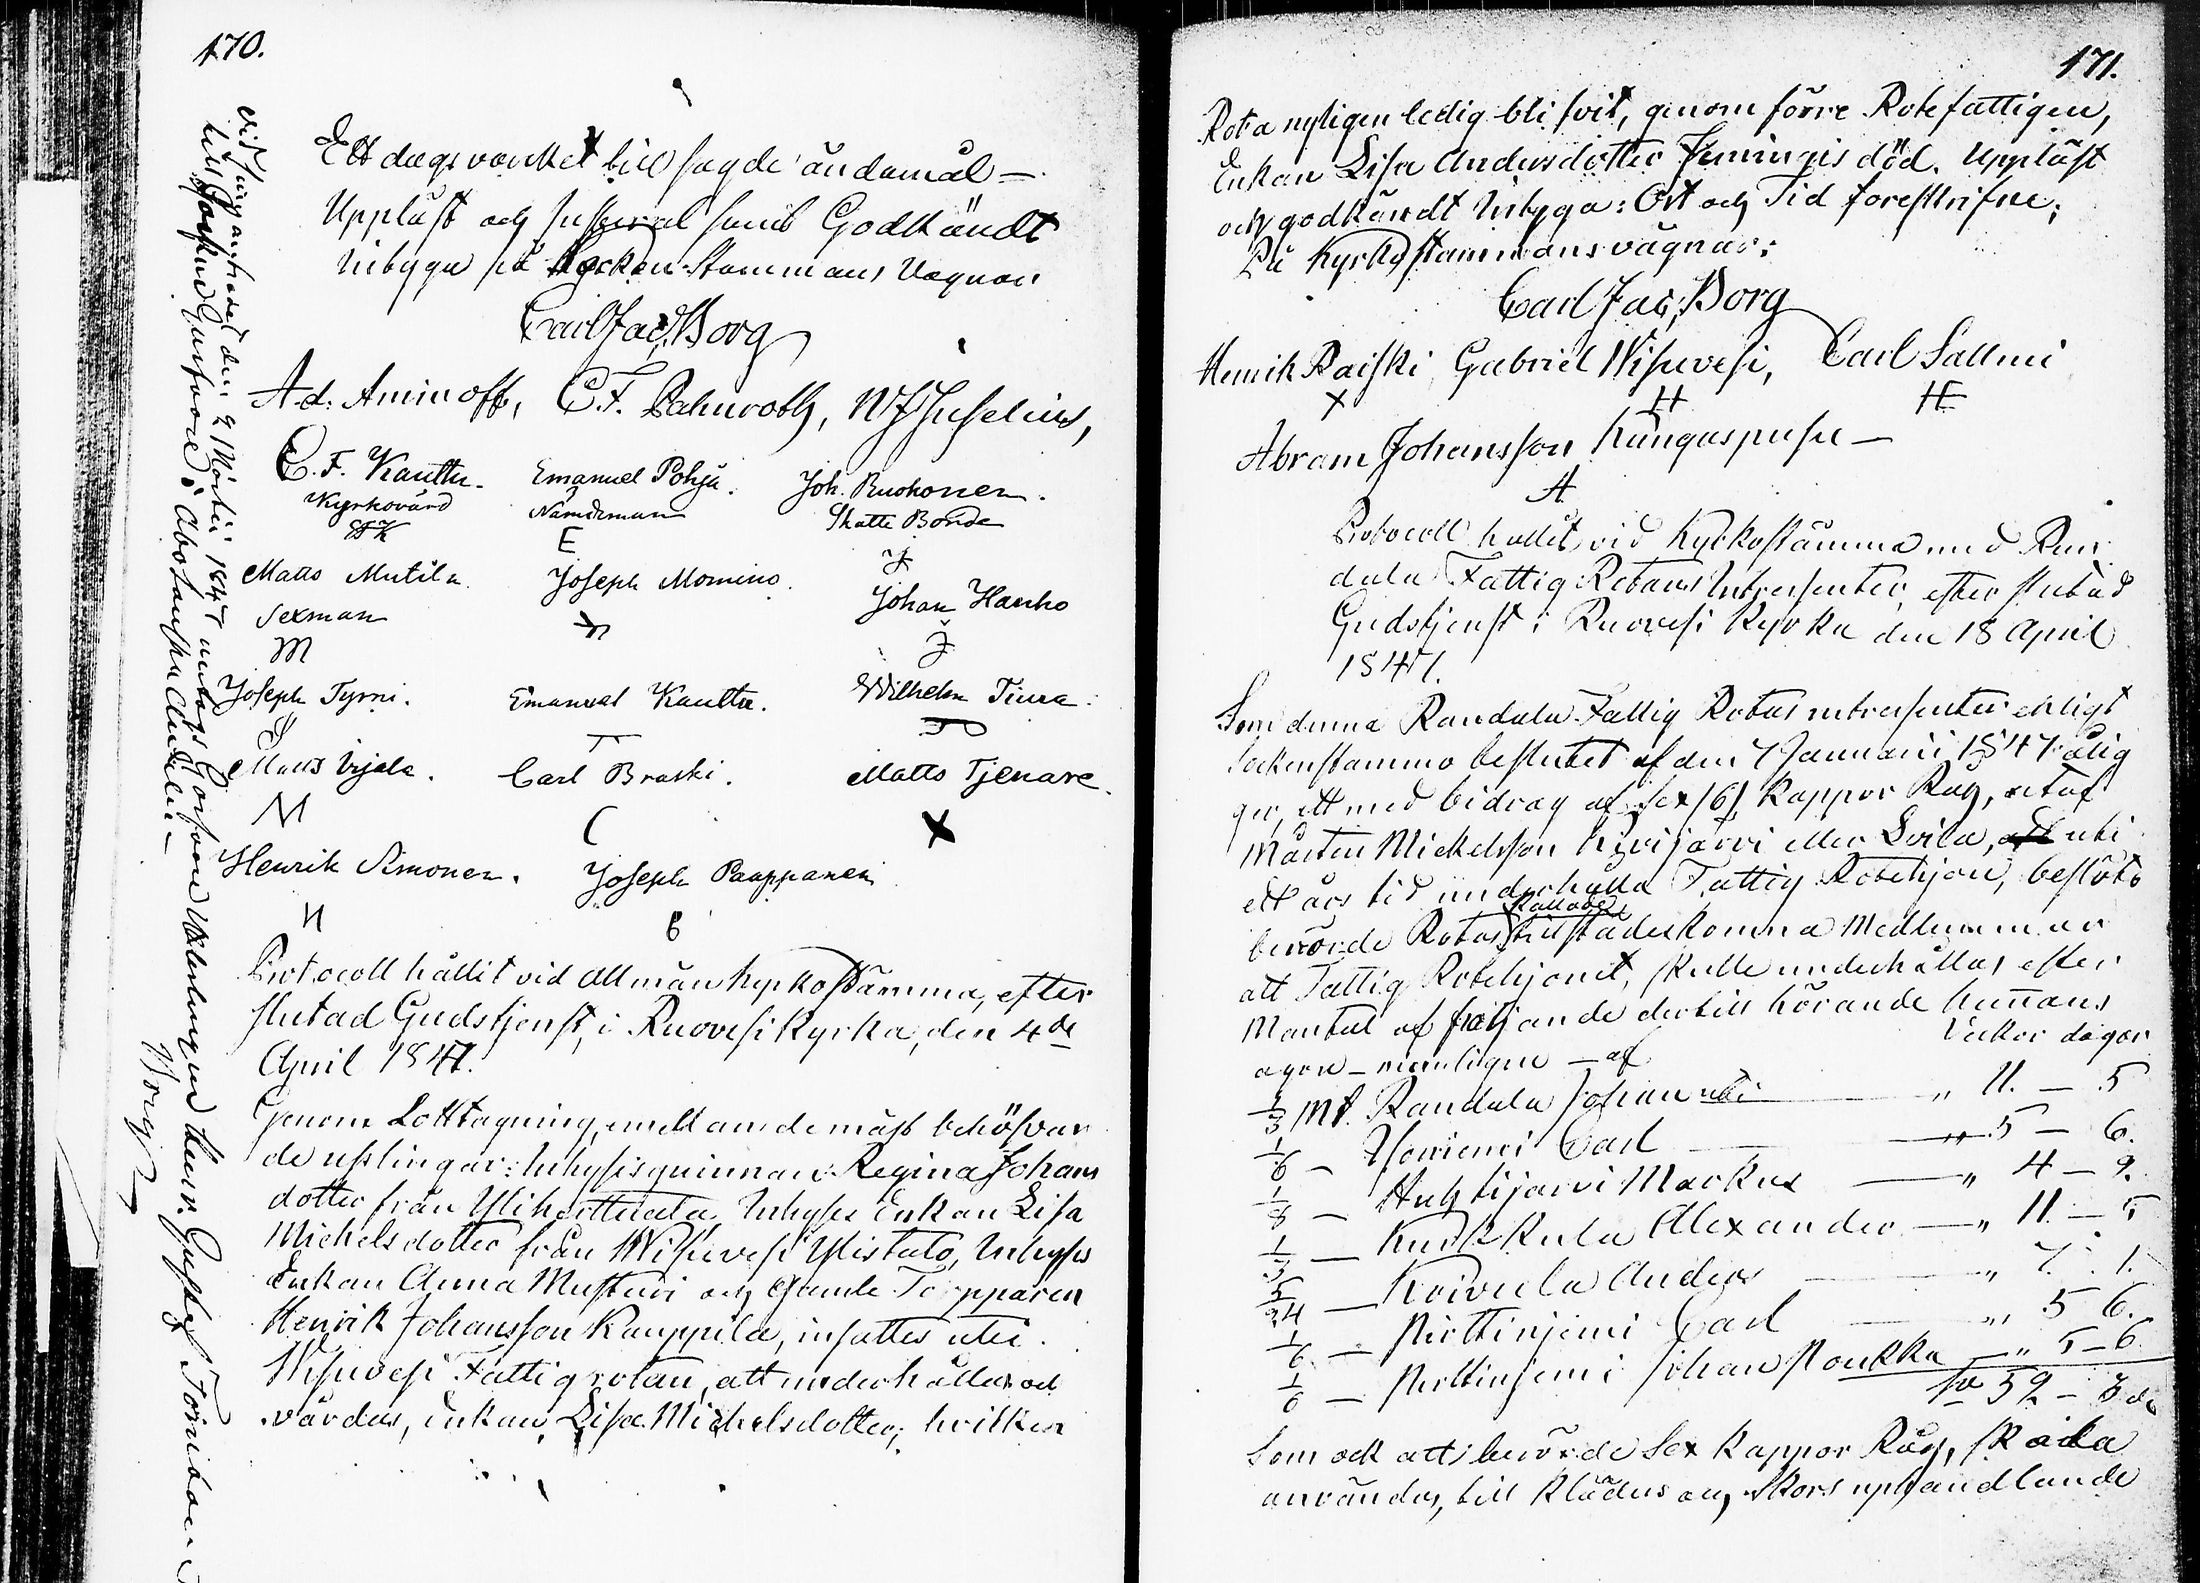 170.
Ett dagsverket till sagde ändamål —
Uppläst och justerat samt Godkändt
intyga på Socken Stammans Vägnar
Carl Jac. Borg
A.d. Aminoff, C.F. Palmroth, N J Juselius,
C. F. Kauttu. Emanuel Pohja. Joh. Ruokonen.
Kyrkovärd Nämdeman Skatte Bonde
CFK E J
Matts Mutila Joseph Mommo. Johan Hanho
Sexman
M J
Joseph Tyrni. Emanuel Kauttu. Wilhelm Tiura.
Matts Vijala. Carl Braski. Matts Tjenare.
M C X
Henrik Simonen. Joseph Pauppanen
H
Protocoll hållit vid Allmän Kyrkostämma, efter
slutad Gudstjenst, i Ruovesi Kyrka, den 4de
April 1847.
Genom Lottagning, emellan de mäst behöfvan
de usslingar: Inhysisqvinnan Regina Johans
dotter från Ylihärttuala, Inhyses Enkan Lisa
Michelsdotter från Wisuvesi Ylistalo, Inhyses
Enkan Anna Musturi och Gamle Torpparen
Henrik Johansson Kauppila, insattes uti
Wisuvesi Fattigrotan, att underhållas och
vårdas, Enkan Lisa Michelsdotter; hvilken
vid Ting anstedet den 9 Martii 1847 antogs
till i Åbo
Borg
171.
Rota nyligen ledig blifvit, genom förre Rotefattigen,
Enkan Lisa Andersdotter död. Uppläst
och godkändt intyga: Ort och Tid föreskrifne;
På Kyrkostammans vägnar:
Carl Jac. Borg
Henrik Raiski Gabriel Wisuvesi, Carl Sallmi
X H
Abram Johansson Kangaspuse —
A
Protocoll hållit vid Kyrkostämma med Ran
dala Fattig Rotans Intressenter, efter slutad
Gudstjenst i Ruovesi Kyrka den 18 April
1847.
Som denna Randala Fattig Rotas intressenter enligt
Sockenstämmo beslutet af den 7 Januarii 1847 ålig
ger, ett med bidrag af sex /6/ Kappor Råg, utaf
Mårten Mickelsson Kyrijärvi eller Svila, uti
ett års tid underhålla Fattig Rotehjon, beslöto
kallade
berörde Rotas tillstädeskomna Medlemmar
att Fattig Rotehjonet, skulle underhållas efter
Mantal af följande dertill hörande hemans
Veckor dagar
egare — nemligen — af
1/3 Mt. Randala Johan uti — " 11. — 5
1/6 — Honiemi Carl — " 5 — 6.
1/8 — Huhtijärvi Markus — " 4 — 2.
1/3 — Kurkkula Alexander — " 11. — 5
5/24 — Koivula Anders — " 7. 1.
1/6 — Perttinjemi Carl — " 5 6.
1/6 — Perttinjemi Johan Poukka — " 5 — 6
Sa 52 — 3 da
Som ock att berörde Sex Kappor Råg, skola
användas, till Kläders och Skors uphandlande